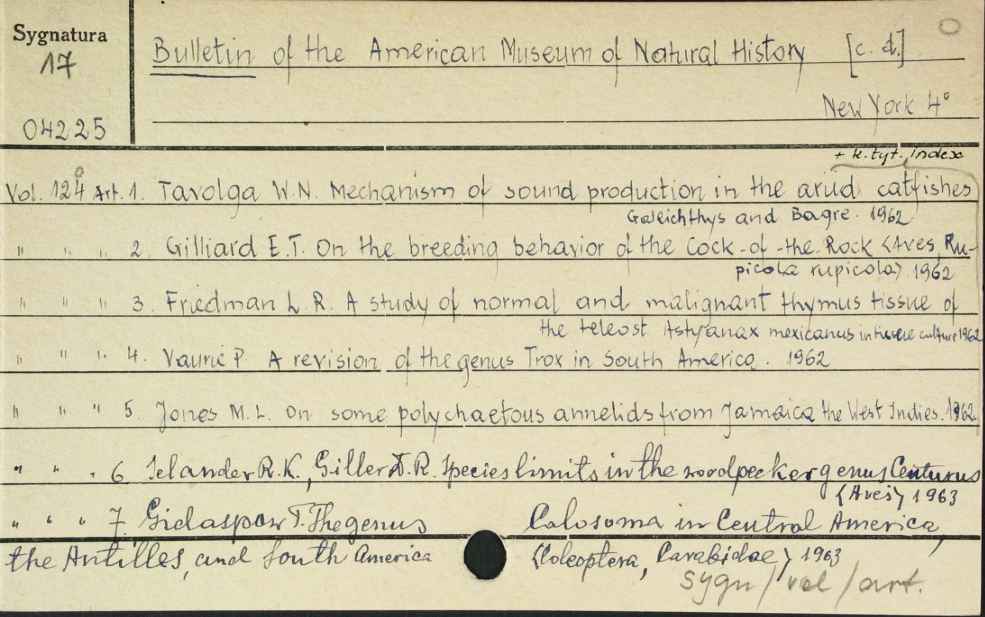 Sygnatura
17
04225
Bulletin of the American Museum of Natural History [c. d.]
New York 4°
+ k. tyt., index
Vol. 124 Art. 1. Tavolga W.N. Mechanism of sound production in the ariid catfishes
Galeichthys and Bagre. 1962
" " " 2. Gilliard E.T. On the breeding behavior of the Cock-of-the-Rock <Aves, Ru-
picola rupicola> 1962
" " " 3. Friedman L. R. A study of normal and malignant thymus tissue of
the teleost Astyanax mexicanus in tissue culture 1962
" " " 4. Vaurie P. A revision of the genus Trox in South America. 1962
" " " 5. Jones M.L. On some polychaetous annelids from Jamaica the West Indies. 1962
" " " 6. Selander R.K., Giller D.R. Species limits in the woodpecker genus Centurus
<Aves> 1963
" " " 7. Gidaspow T. The genus Calosoma in Central America,
the Antilles, and South America <Coleoptera, Carabidae> 1963
sygn/vol/art.